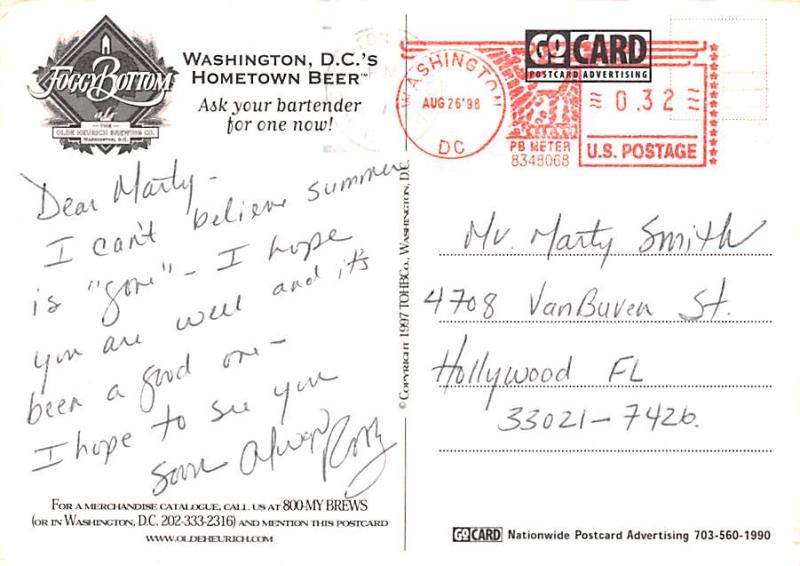 FOGGY BOTTOM
ale
THE
OLDE HEURICH BREWING CO.
WASHINGTON, D.C.
WASHINGTON, D.C.'S
HOMETOWN BEER™
Ask your bartender
for one now!
Dear Marty -
I can't believe summer
is "gone" - I hope
you are well and it's
been a good one -
I hope to see you
soon Always
© COPYRIGHT 1997 TOHBCO., WASHINGTON, D.C.
WASHINGTON
AUG 26 '98
DC
GOCARD
POSTCARD ADVERTISING
PB METER
8348068
0.32
U.S. POSTAGE
Mr. Marty Smith
4708 VanBuren St.
Hollywood FL
33021-7426.
FOR A MERCHANDISE CATALOGUE, CALL US AT 800-MY BREWS
(OR IN WASHINGTON, D.C. 202-333-2316) AND MENTION THIS POSTCARD
WWW.OLDEHEURICH.COM
GOCARD Nationwide Postcard Advertising 703-560-1990